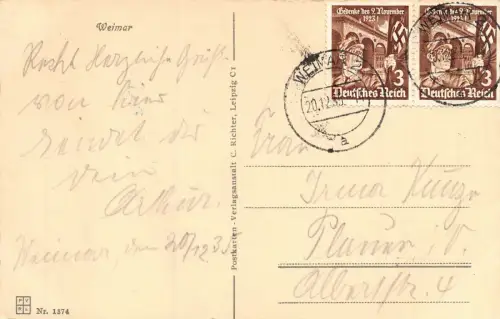 Weimar
Recht herzliche Grüße
von hier
sendet dir
dein
Arthur.
Weimar, den 20/12 35
Nr. 1374
Postkarten-Verlagsanstalt C. Richter, Leipzig C1
Gedenke des 9. November
1923!
3
Deutsches Reich
Gedenke des 9. November
1923!
3
Deutsches Reich
WEIMAR
20.12.35
a
WEIMAR
Frau
Irma Kunze
Plauen i. V.
Albertstr. 4